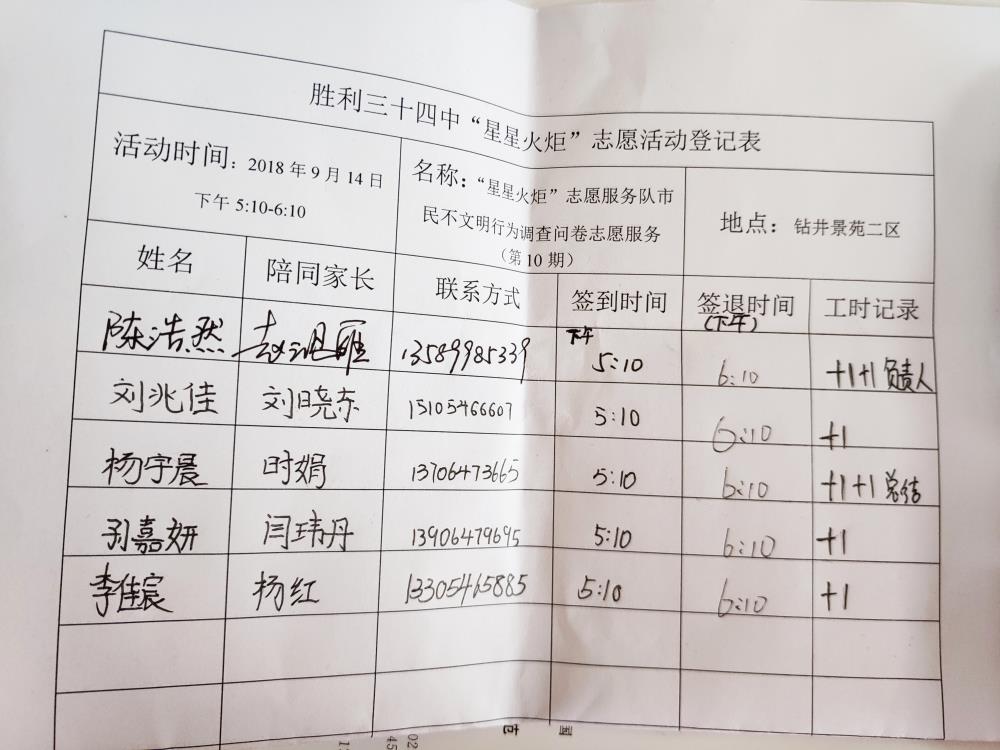 胜利三十四中“星星火炬”志愿活动登记表
活动时间：2018年9月14日
下午5:10-6:10
名称：“星星火炬”志愿服务队市
民不文明行为调查问卷志愿服务
（第10期）
地点：钻井景苑二区
姓名 陪同家长 联系方式 签到时间 签退时间 工时记录
下午 (下午)
陈浩然 13589985339 5:10 6:10 +1+1 负责人
刘兆佳 刘晓东 15105466607 5:10 6:10 +1
杨宇晨 时娟 13706473665 5:10 6:10 +1+1 总结
孙嘉妍 闫玮丹 13906479695 5:10 6:10 +1
李佳宸 杨红 13305465885 5:10 6:10 +1